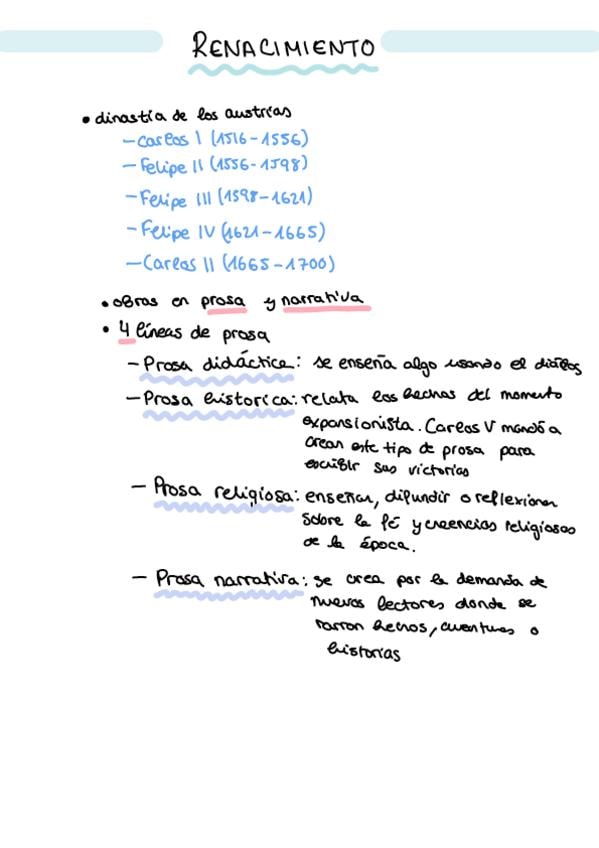 RENACIMIENTO
• dinastía de los austrias
– Carlos I (1516 - 1556)
– Felipe II (1556 - 1598)
– Felipe III (1598 - 1621)
– Felipe IV (1621 - 1665)
– Carlos II (1665 - 1700)
• obras en prosa y narrativa
• 4 líneas de prosa
– Prosa didáctica: se enseña algo usando el diálogo
– Prosa historica: relata los hechos del momento
expansionista. Carlos V mandó a
crear este tipo de prosa para
escribir sus victorias
– Prosa religiosa: enseñar, difundir o reflexionar
sobre la fé y creencias religiosas
de la época.
– Prosa narrativa: se crea por la demanda de
nuevos lectores donde se
narran hechos, aventuras o
historias